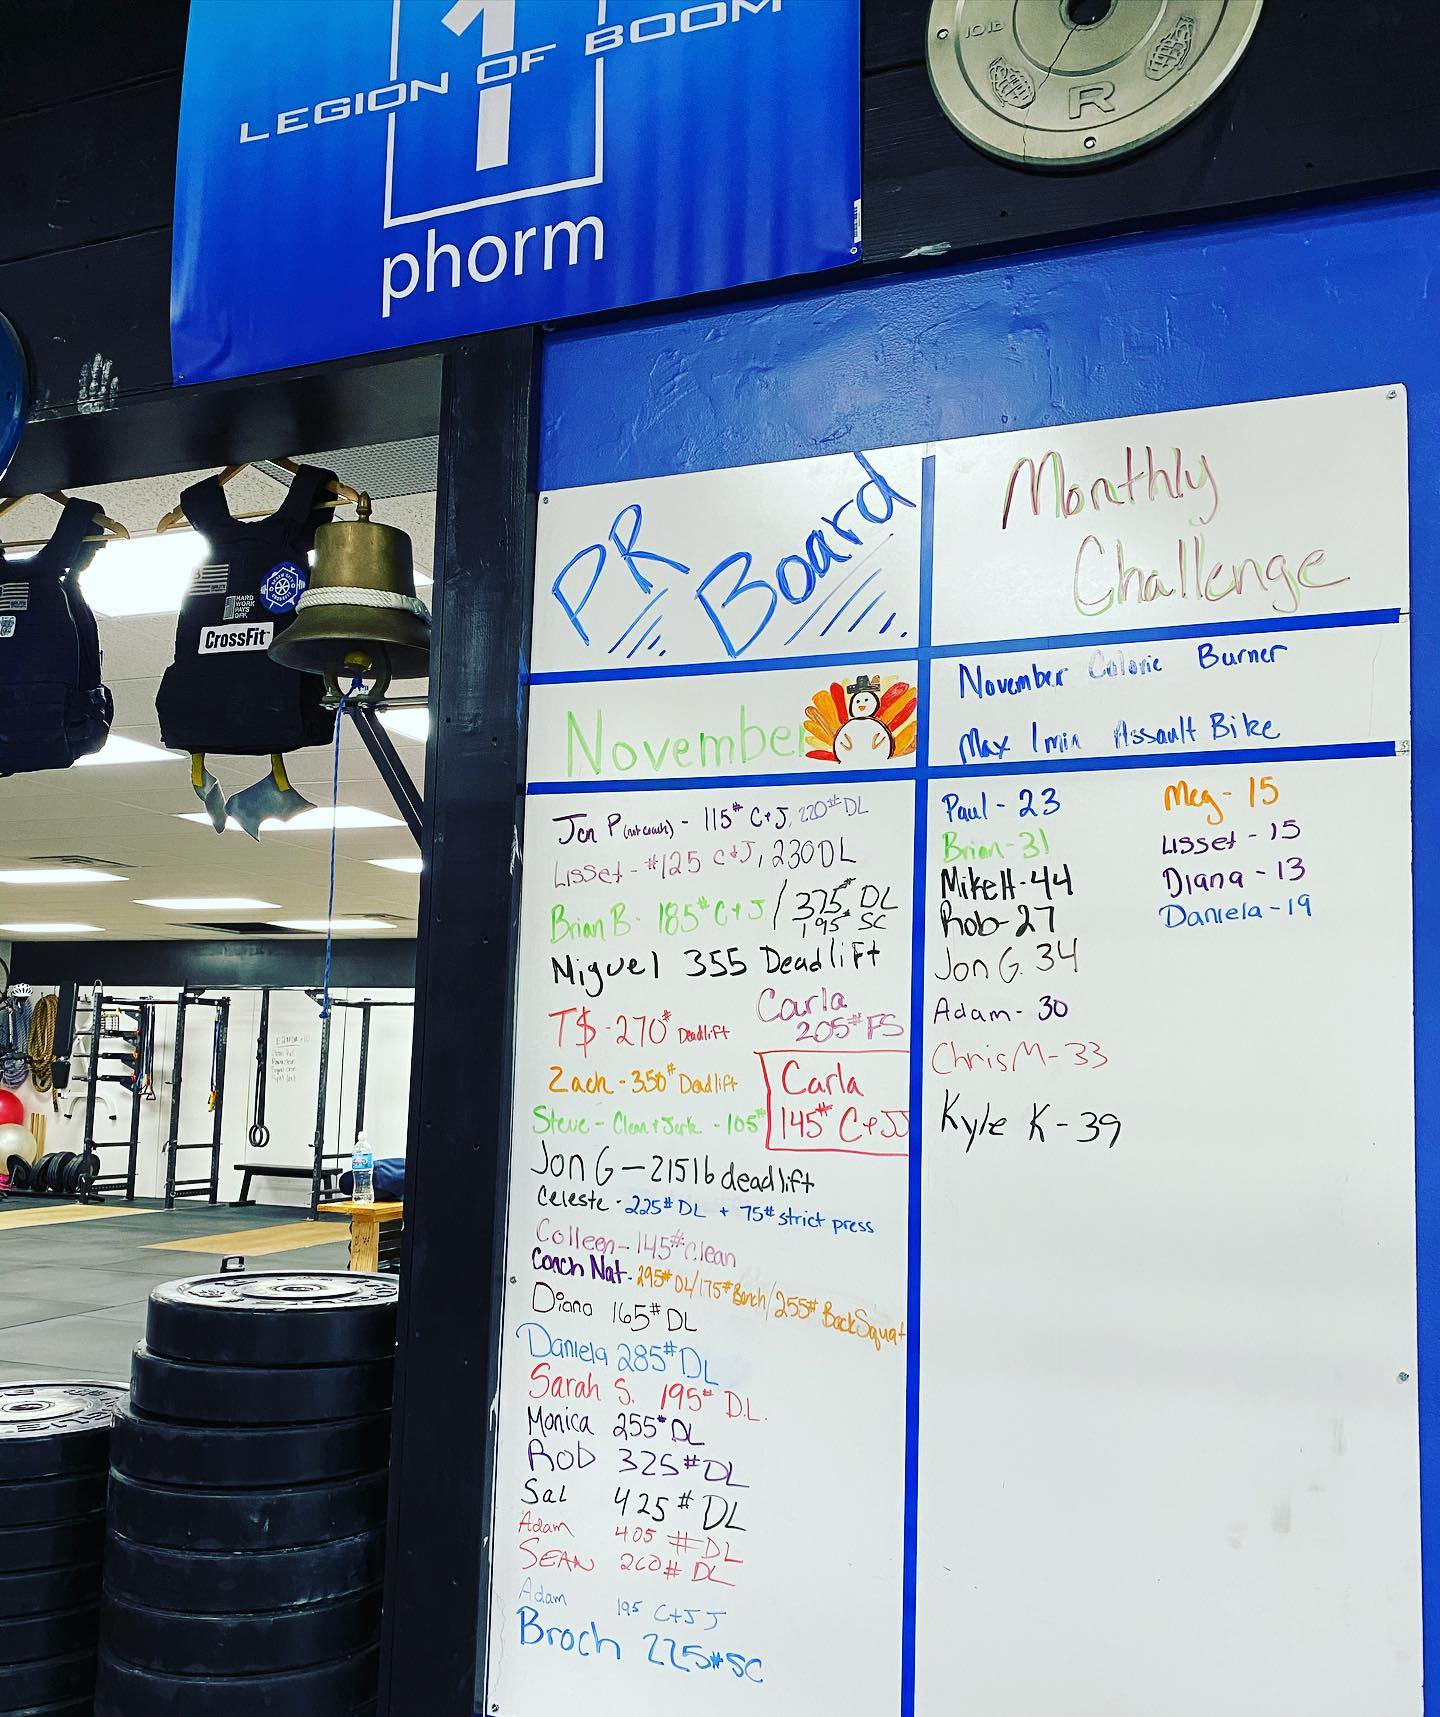 LEGION OF BOOM
1
phorm
10 LB
R
HARD WORK PAYS OFF.
CrossFit
PR Board
November
Jen P (not crach) - 115# C+J, 220# DL
Lisset - #125 C+J, 230 DL
Brian B - 185# C+J / 375# DL
195# SC
Miguel 355 Deadlift
T$ - 270# Deadlift
Carla
205# FS
Zach - 350# Deadlift
Carla
145# C+JJ
Steve - Clean + Jerk - 105#
Jon G - 215lb deadlift
Celeste - 225# DL + 75# strict press
Colleen - 145# Clean
Coach Nat - 295# DL/175# Bench/255# Back Squat
Diana 165# DL
Daniela 285# DL
Sarah S. 195# D.L.
Monica 255# DL
Rob 325# DL
Sal 425# DL
Adam 405 # DL
SEAN 260# DL
Adam 195 C+JJ
Broch 225# SC
Monthly
Challenge
November Calorie Burner
Max 1 min Assault Bike
Paul - 23
Brian - 31
Mike H - 44
Rob - 27
Jon G. 34
Adam - 30
Chris M - 33
Kyle K - 39
Meg - 15
Lisset - 15
Diana - 13
Daniela - 19